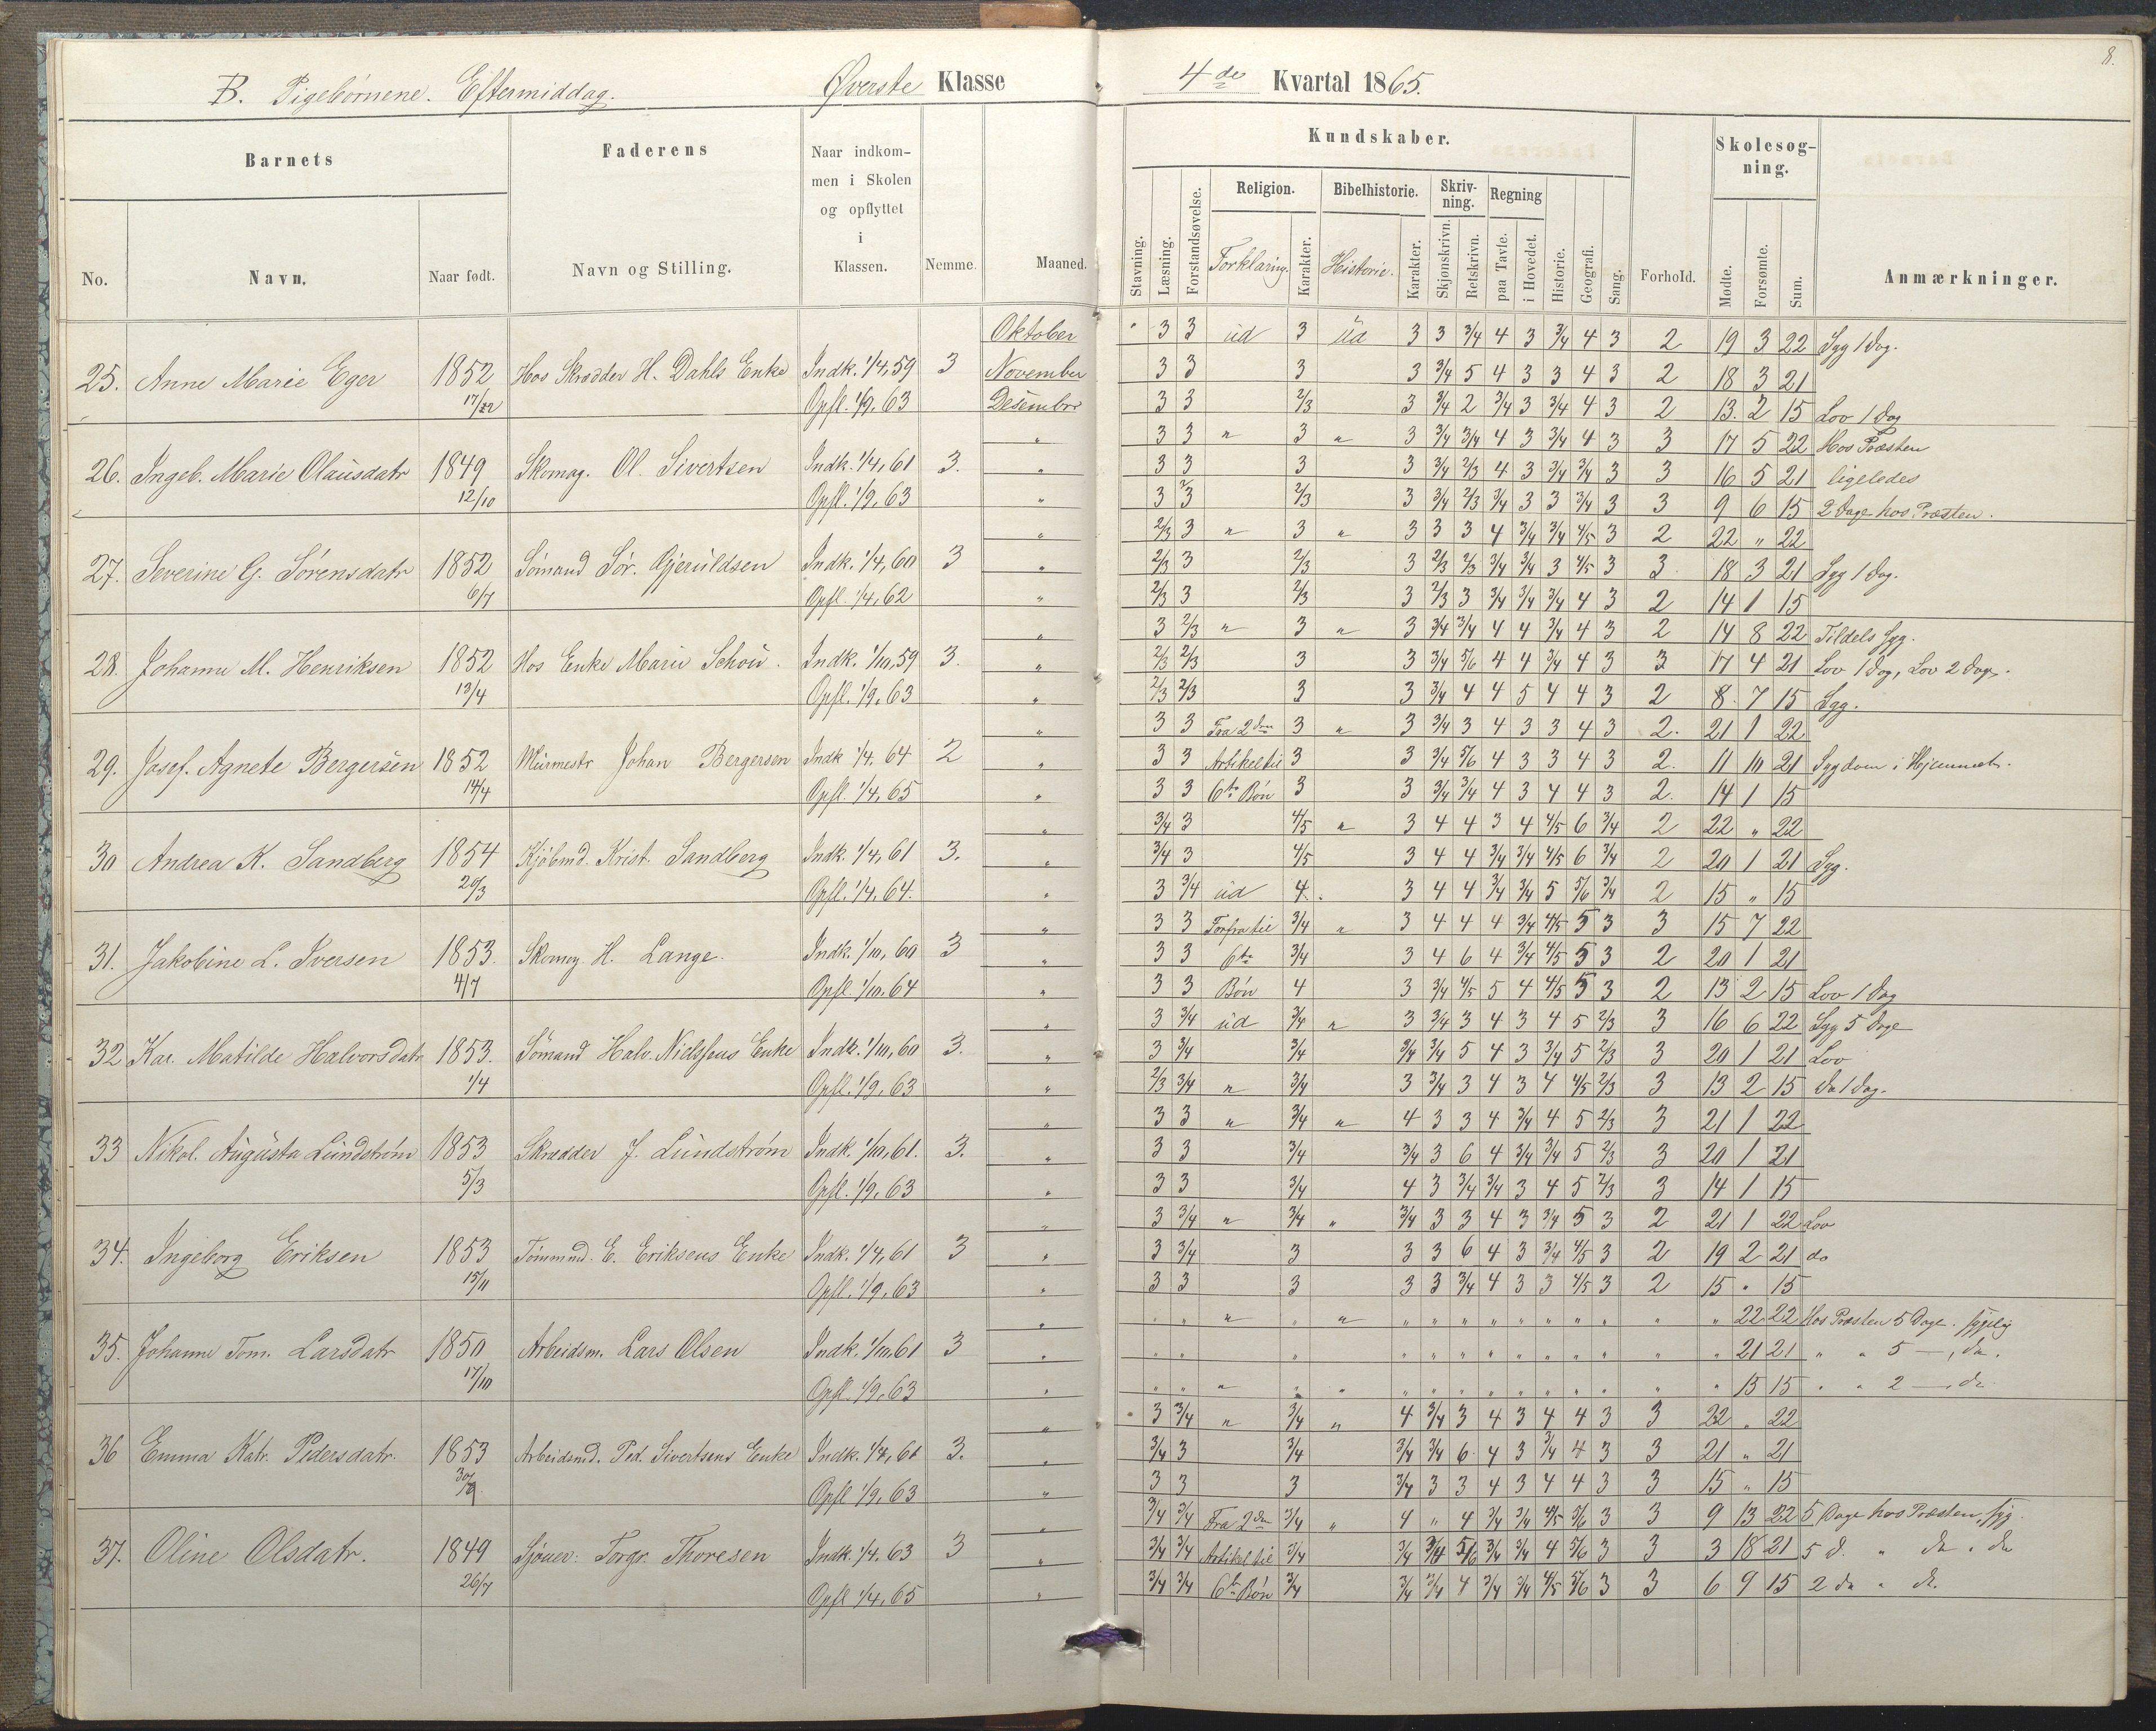 8.
B. Pigebørnene. Eftermiddag. Øverste Klasse 4de Kvartal 1865.
Barnets
Faderens
Naar indkommen i Skolen og opflyttet i Klassen.
Nemme.
Maaned.
No. Navn. Naar født. Navn og Stilling.
Kundskaber.
Stavning. Læsning. Forstandsøvelse. Religion. Forklaring. Karakter. Bibelhistorie. Historie. Karakter. Skrivning. Skjønskrivn. Retskrivn. Regning paa Tavle. i Hovedet. Historie. Geografi. Sang. Forhold. Skolesøgning. Mødte. Forsømte. Sum. Anmærkninger.
Oktober " 3 3 ud 3 ud 3 3 3/4 4 3 3/4 4 3 2 19 3 22 Syg 1 Dag.
25. Anne Marie Eger 1852 Hos Skrædder H. Dahls Enke Indk. 1/4, 59 3 November 3 3 3 3 3/4 5 4 3 3 4 3 2 18 3 21
17/12 Opfl. 1/9, 63 Desember 3 3 2/3 3 3/4 2 3/4 3 3/4 4 3 2 13. 2 15 Lov 1 Dag
" 3 3 " 3 " 3 3/4 3/4 4 3 3/4 4 3 3 17 5 22 Hos Præsten
26. Ingeb. Marie Olausdatr 1849 Skomag. Ol. Sivertsen Indk. 1/4, 61 3. " 3 3 3 3 3/4 2/3 4 3 3/4 3/4 3 3 16 5 21 ligeledes
12/10 Opfl. 1/9, 63 " 3 3 2/3 3 3/4 2/3 3/4 3 3 3/4 3 3 9 6 15 2 Dage hos Præsten.
" 2/3 3 " 3 " 3 3 3 4 3/4 3/4 4/5 3 2 22 " 22
27. Severine G. Sørensdatr 1852 Sømand Sør. Gjeruldsen Indk. 1/4, 60 3 " 2/3 3 2/3 3 2/3 2/3 3/4 3/4 3 4/5 3 3. 18 3 21 Syg 1 Dag.
6/7 Opfl. 1/4, 62 " 2/3 3 2/3 3 2/3 3 3/4 3/4 3/4 4 3 2 14 1 15
" 3 2/3 " 3 " 3 3/4 3/4 4 4 3/4 4 3 2 14 8 22 Tildels syg.
28. Johanne M. Henriksen 1852 Hos Enke Marie Schou. Indk. 1/10, 59 3. " 2/3 2/3 3 3 3/4 5/6 4 4 3/4 4 3 3 17 4 21 Lov 1 Dag, Lov 2 Dage.
13/4 Opfl. 1/9, 63 " 2/3 2/3 3 3 3/4 4 4 5 4 4 3 2 8. 7 15 Syg.
" 3 3 Fra 2den 3 " 3 3/4 3 4 3 3 4 3 2. 21 1 22
29. Josef. Agnete Bergersen 1852 Murmestr Johan Bergersen Indk 1/4, 64 2 " 3 3 Artikel til 3 3 3/4 5/6 4 3 3 4 3 2. 11 10 21 Sygdom i Hjemmet.
14/4 Opfl. 1/4, 65 " 3 3 6te Bøn 3 3 3/4 3/4 4 3 4 4 3 2. 14 1 15
" 3/4 3 4/5 " 3 4 4 3 4 4/5 6 3/4 2 22 " 22
30 Andrea K. Sandberg 1854 Kjøbmd. Krist. Sandberg Indk. 1/4, 61 3. " 3/4 3 4/5 3 4 4 3/4 3/4 4/5 6 3/4 2 20 1 21 Syg.
20/3 Opfl. 1/4, 64. " 3 3/4 ud 4. 3 4 4 3/4 3/4 5 5/6 3/4 2 15 " 15
" 3 3 Forfra til 3/4 " 3 4 4 4 3/4 4/5 5 3 3 15 7 22
31. Jakobine L. Iversen 1853. Skomag. H. Lange. Indk. 1/10, 60 3 " 3 3 6te 3/4 3 4 6 4 3/4 4/5 5 3 2 20 1 21
4/7 Opfl. 1/10, 64 " 3 3 Bøn 4 3 3/4 4/5 5 4 4/5 5 3 2 13 2 15 Lov 1 Dag
" 3 3/4 ud 3/4 " 3 3/4 3 4 3 4 5 2/3 3 16 6 22 Syg 5 Dage
32 Kar. Matilde Halvorsdatr 1853. Sømand Halv. Nielssens Enke Indk. 1/10, 60 3. " 3 3/4 3/4 3/4 3/4 5 4 3 3/4 5 2/3 3 20 1 21 Lov
1/4 Opfl. 1/9, 63 " 2/3 3/4 " 3/4 3 3/4 3 4 3 4 4/5 2/3 3 13 2 15 do 1 Dag.
" 3 3 " 3/4 " 4 3 3 4 3/4 4 5 2/3 3 21 1 22
33 Nikol. Augusta Lundstrøm 1853 Skrædder J. Lundstrøm Indk. 1/10, 61. 3. " 3 3 3/4 3/4 3 6 4 3/4 3/4 5 2/3 3 20 1 21
5/3 Opfl. 1/9, 63 " 3 3 3/4 4 3 3/4 3/4 3 4 5 2/3 3 14 1 15
" 3 3/4 " 3/4 " 3/4 3 3 4 3 3/4 5 3 2 21 1 22 Lov
34. Ingeborg Eriksen 1853 Tømmmd. E. Eriksens Enke Indk. 1/4, 61 3 " 3 3/4 3 3 3 6 4 3 3/4 4/5 3 2 19 2 21 do
15/11 Opfl. 1/9, 63 " 3 3 3 3 3 3/4 4 3 3 4/5 3 2 15 " 15
" " " " " " " " " " " " " " " " " 22 22 Hos Præsten 5 Dage. sygelig
35. Johanne Tom. Larsdatr 1850 Arbeidsm. Lars Olsen Indk. 1/10, 61 3 " " " " " " " " " " " " " " 21 21 " " 5 —, do.
17/10 Opfl. 1/9, 63 " " " " " " " " " " " " " " " " 15 15 " " 2 —, do.
" 3 3/4 " 3/4 " 4 3/4 3 4 3 4 4 3 3 22 " 22
36 Emma Katr. Pedersdatr. 1853 Arbeidsmd. Ped. Sivertsens Enke Indk. 1/4, 61 3. " 3/4 3 3/4 3/4 3/4 6 4 3 3/4 4 3 3 21 " 21
30/9 Opfl 1/9, 63 " 3 3 3 3/4 3 3 4 3 4 4 3 3 15 " 15
" 3/4 3/4 Fra 2den 3/4 " 4 " 4 3/4 3/4 4/5 5/6 3 3 9 13 22 5 Dage hos Præsten, syg.
37. Oline Olsdatr. 1849 Torgr. Thoresen Indk. 1/4, 63 3 " 3/4 3/4 Artikel til 3/4 3/4 3/4 5/6 3/4 3/4 4 5/6 3 3 3 18 21 5 D. " do " do
26/7 Opfl 1/4, 65 " 3/4 3/4 6te Bøn 3/4 3/4 3/4 4 3/4 3/4 4/5 5/6 3 3 6 9 15 2 do " do.